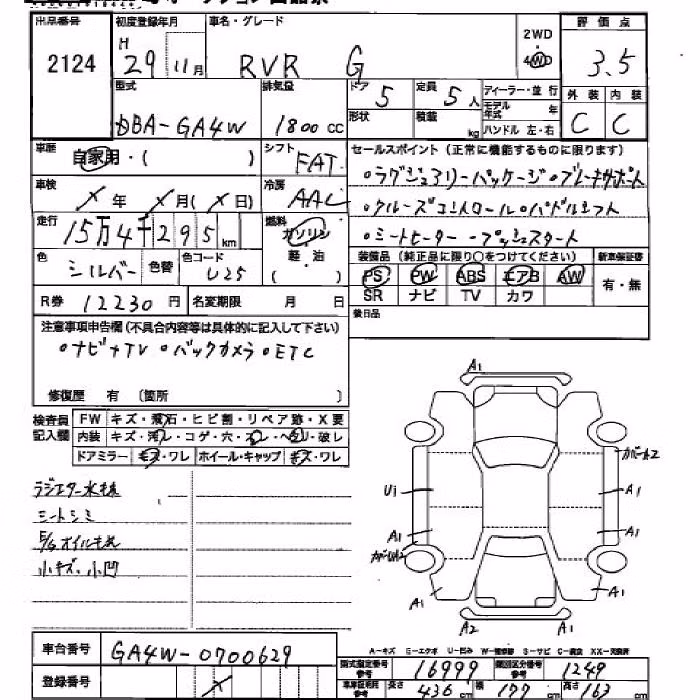 出品番号 初度登録年月 車名・グレード 2WD 評価点
2124 H 29 11月 RVR G 4WD 3.5
型式 排気量 ドア 5 定員 5人 ディーラー・並行 外装 内装
DBA-GA4W 1800cc 形状 積載 kg モデル年式 年 C C
ハンドル 左・右
車歴 自家用・( ) シフト FAT セールスポイント(正常に機能するものに限ります)
車検 X年 X月(X日) 冷房 AAC ・ラグジュアリーパッケージ・ブレーキサポート
・クルーズコントロール・パドルシフト
走行 15万4千295km 燃料 ガソリン ・シートヒーター・プッシュスタート
色 シルバー 色替 色コード U25 軽・油 ( ) 装備品(純正品に限り○をつけてください) 新車保証書
PS PW ABS エアB AW 有・無
SR ナビ TV カワ
R券 12230円 名変期限 月 日 後日品
注意事項申告欄(不具合内容等は具体的に記入して下さい)
・ナビ+TV ・バックカメラ・ETC
修復歴 有 (箇所 )
検査員 FW キズ・飛石・ヒビ割・リペア跡・X要
記入欄 内装 キズ・汚レ・コゲ・穴・スレ・ヘコリ・破レ
ドアミラー キズ・ワレ ホイール・キャップ キズ・ワレ
シートシミ
小キズ、小凹
A1
A1
A1
A1
A1
A1
A2 A1
車台番号 GA4W-0700629
登録番号
A-キズ E-エクボ U-凹み
型式指定番号 参考 16999 類別区分番号 参考 1249
長さ 436cm 幅 177cm 高さ 163cm